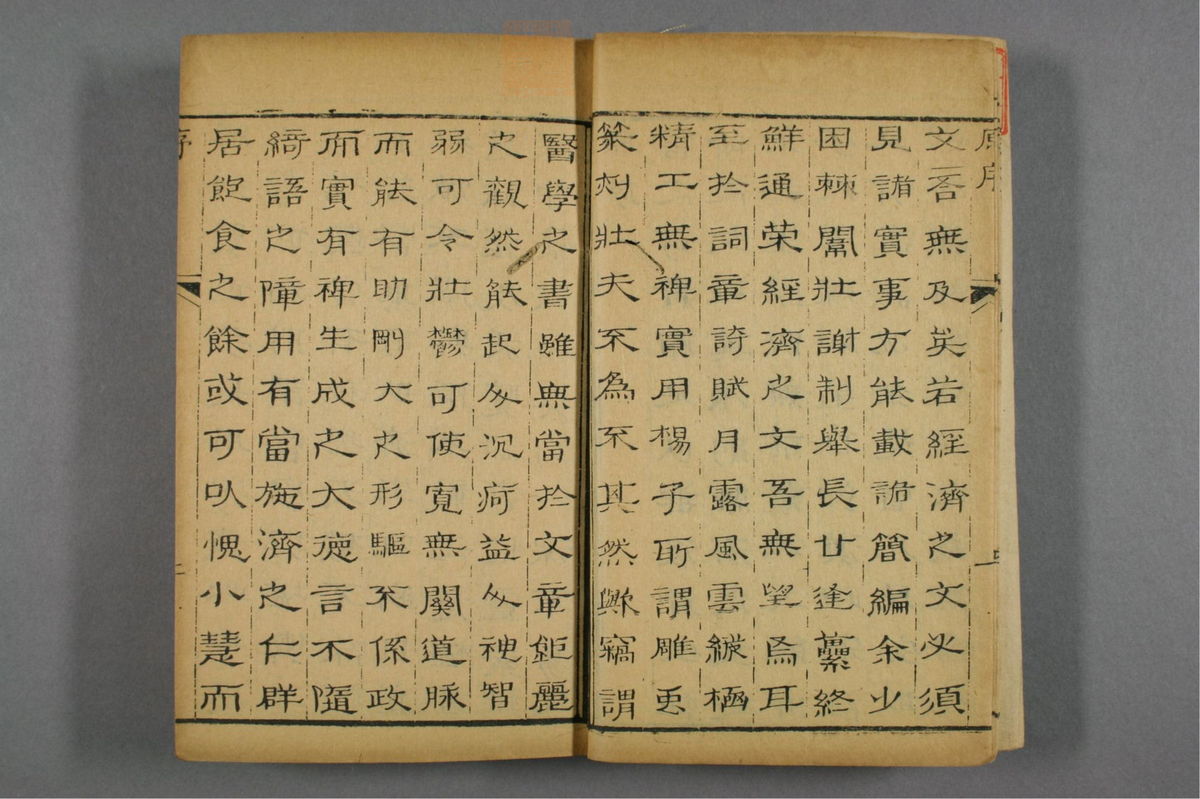 原序
文吾無及矣若經濟之文必須
見諸實事方能載詭簡編余少
困棘闈壯謝制舉長甘逢纍終
鮮通荣經濟之文吾無望焉耳
至扵詞章詩賦月露風雲縱極
精工無裨實用楊子所謂雕
篆刻壯夫不為不其然歟竊謂
醫學之書雖無當扵文章鉅麗
之觀然能起人沉疴益人神智
弱可令壯鬱可使寬無關道脉
而能有助剛大之形驅不係政
而實有裨生成之大德言不隨
綺語之障用有當施濟之仁群
居飽食之餘或可㕥愧小慧而
序